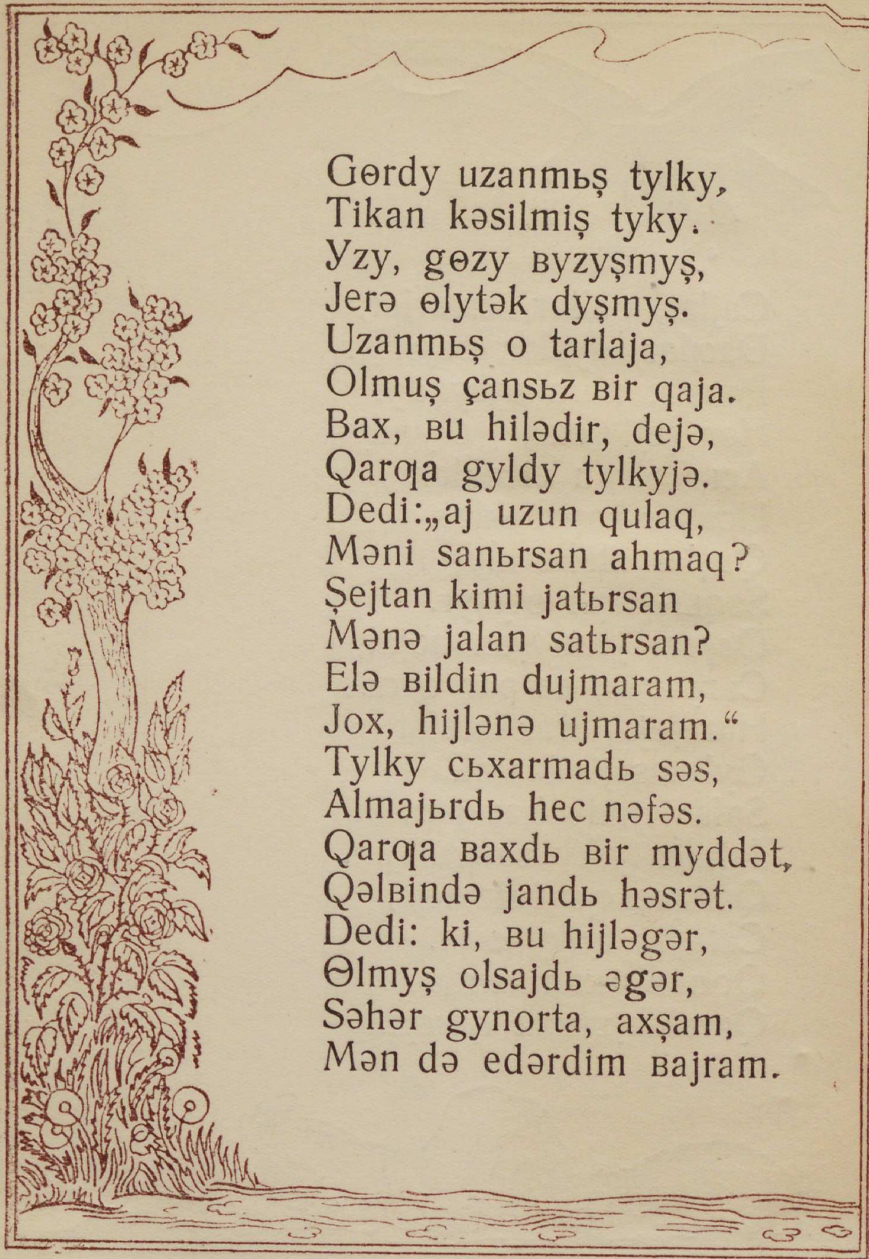 Gɵrdy uzanmьş tylky,
Tikan kəsilmiş tyky.
Yzy, gɵzy ʙyzyşmyş,
Jerə ɵlytək dyşmyş.
Uzanmьş o tarlaja,
Olmuş çansьz ʙir qaja.
Bax, ʙu hilədir, dejə,
Qarƣa gyldy tylkyjə.
Dedi:„aj uzun qulaq,
Məni sanьrsan ahmaq?
Şejtan kimi jatьrsan
Mənə jalan satьrsan?
Elə ʙildin dujmaram,
Jox, hijlənə ujmaram.“
Tylky cьxarmadь səs,
Almajьrdь hec nəfəs.
Qarƣa ʙaxdь ʙir myddət,
Qəlʙində jandь həsrət.
Dedi: ki, ʙu hijləgər,
Ɵlmyş olsajdь əgər,
Səhər gynorta, axşam,
Mən də edərdim ʙajram.